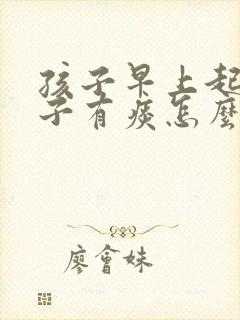 孩子早上起
子有痰怎麼
廖會妹